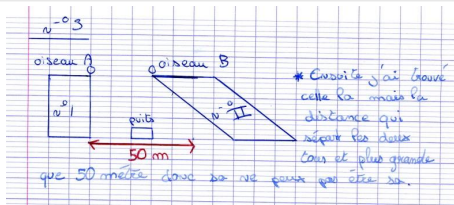 N°3
oiseau A
oiseau B
N°I
N°II
puits
50 m
* Ensuite j'ai trouvé
celle la mais la
distance qui
sépar les deux
tous et plus grande
que 50 métre donc sa ne peux pas étre sa.